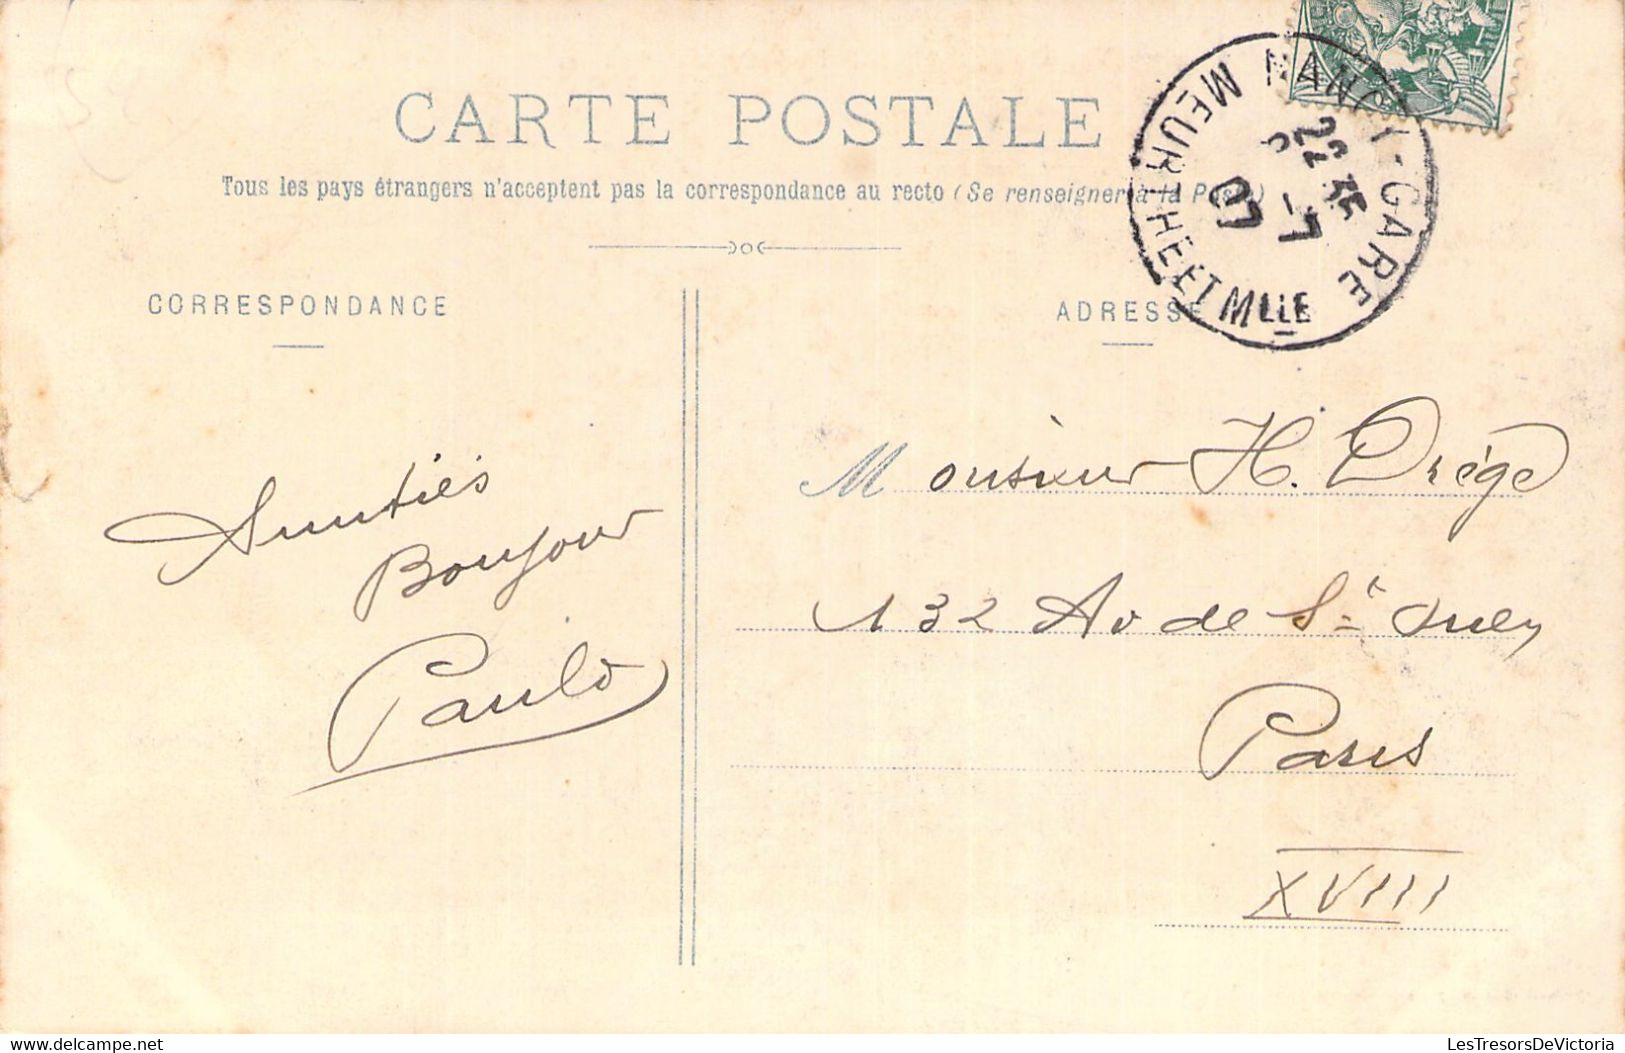 CARTE POSTALE
Tous les pays étrangers n'acceptent pas la correspondance au recto (Se renseigner à la Poste)
CORRESPONDANCE
ADRESSE
NANCY-GARE
MEURTHE ET MLLE
22 35
8 -7
07
Amitiés
Bonjour
Paulo
Monsieur H. Drège
132 Av de St Ouen
Paris
XVIII
Delcampe.net
LesTresorsDeVictoria